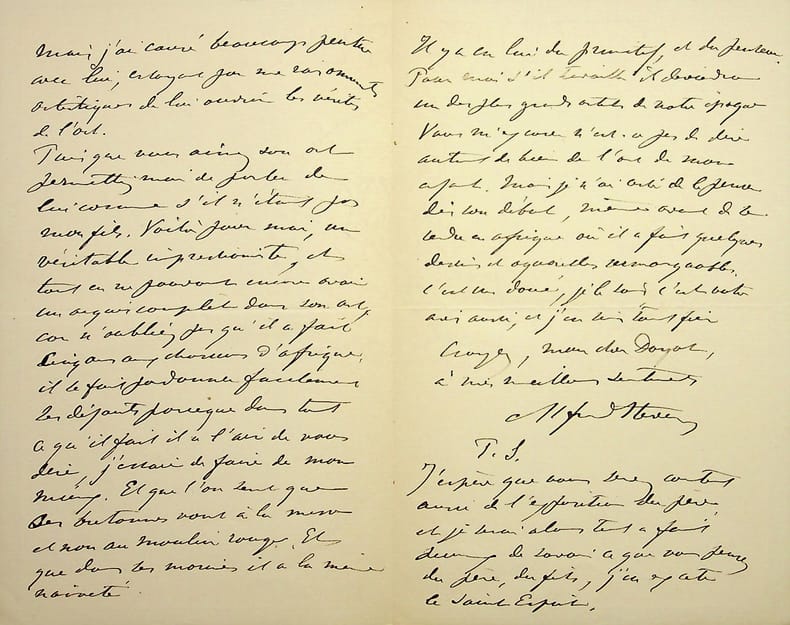 mais j'ai causé beaucoup peinture
avec lui, essayant par mes raisonnements
artistiques de lui ouvrir les vérités
de l'art.
Puisque vous aimez son art
permettez moi de parler de
lui comme s'il n'était pas
mon fils. Voilà pour moi, un
véritable impressioniste, et
tout en ne pouvant encore avoir
un acquis complet dans son art,
car n'oubliez pas qu'il a fait
cinq ans aux chasseurs d'afrique,
il se fait pardonner facilement
ses défauts parceque dans tout
ce qu'il fait il a l'air de vous
dire, j'essaie de faire de mon
mieux. Et que l'on sent que
ses bretonnes vont à la messe
et non au moulin rouge. Et
que dans ses marines il a la même
naïveté.
Il y a en lui du primitif, et du penseur.
Pour moi s'il travaille il deviendra
un des plus grands artistes de notre époque
Vous m'excuserez n'est-ce pas de dire
autant de bien de l'art de mon
enfant. Mais je n'ai cessé de le penser
dès son début, même avant de se
rendre en afrique où il a fait quelques
dessins et aquarelles remarquables.
C'est un doué, je le sais c'est votre
avis aussi, et j'en suis tout fier
Croyez, mon cher Dayot,
à mes meilleurs sentiments
Alfred Stevens
P. S.
J'espère que vous serez content
aussi de l'exposition du père,
et je serai alors tout a fait
heureux de savoir ce que vous pensez
du père, du fils, j'en excepte
le Saint Esprit.